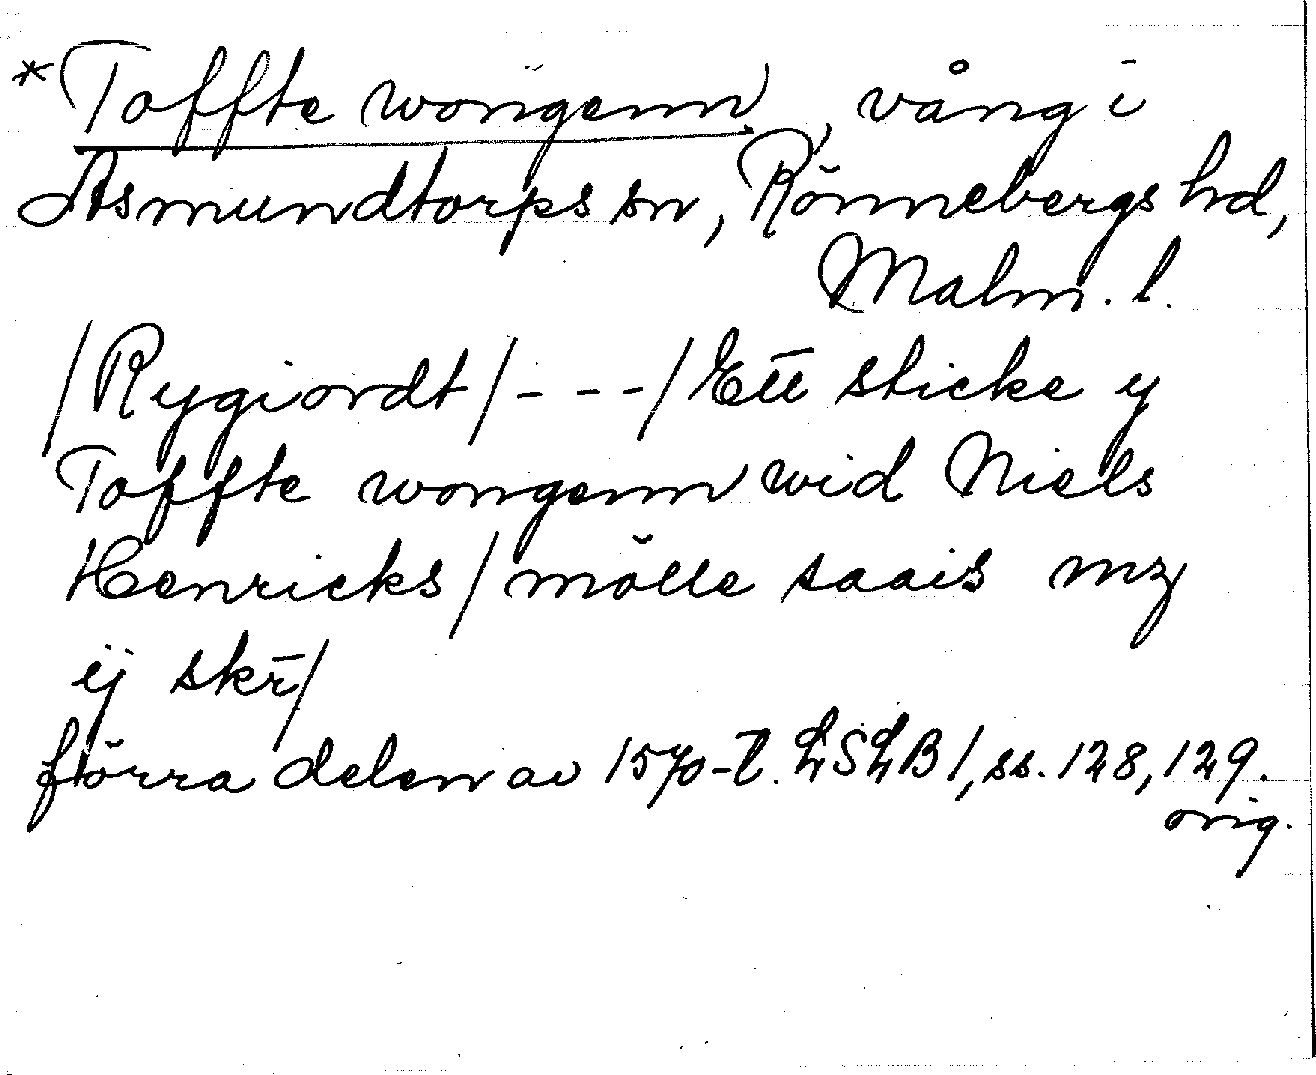 *Toffte wongenn, vång i
Asmundtorps sn, Rönnebergs hd,
Malm. l.
/Rygiordt/---/Ett sticke y
Toffte wongenn wid Niels
Henricks/mölle saais mz
ij skr̄/
förra delen av 1570-t. LSLB 1, ss. 128, 129.
orig.